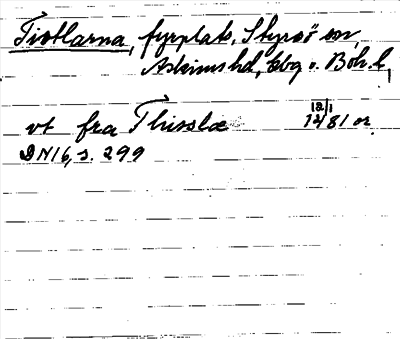 Tistlarna, fyrplats, Styrsö sn,
Askims hd, Gbg o. Boh. l,
vt fra Thisslæ 12/1 81 or.
DN16, s. 299